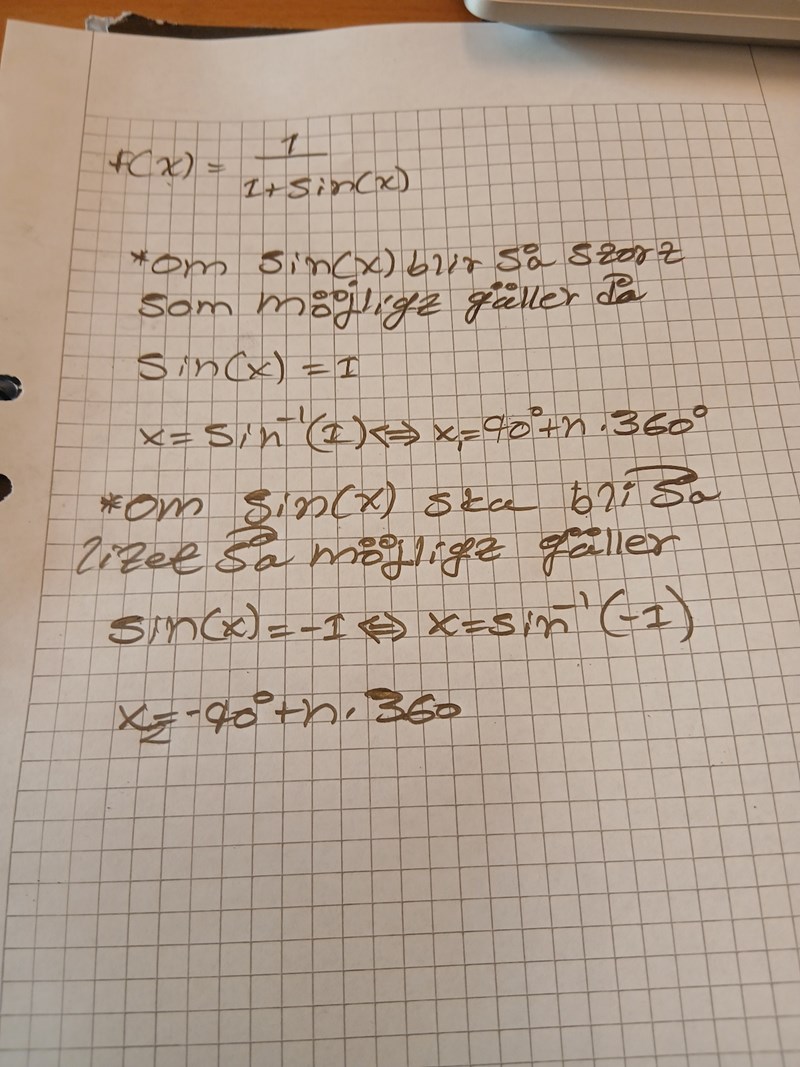 f(x) = 1/(1+sin(x))
*om sin(x) blir så stort
som möjligt gäller då
sin(x) = 1
x = sin⁻¹(1) ⇔ x₁ = 90° + n · 360°
*om sin(x) ska bli så
litet så möjligt gäller
sin(x) = -1 ⇔ x = sin⁻¹(-1)
x₂ = -90° + n · 360